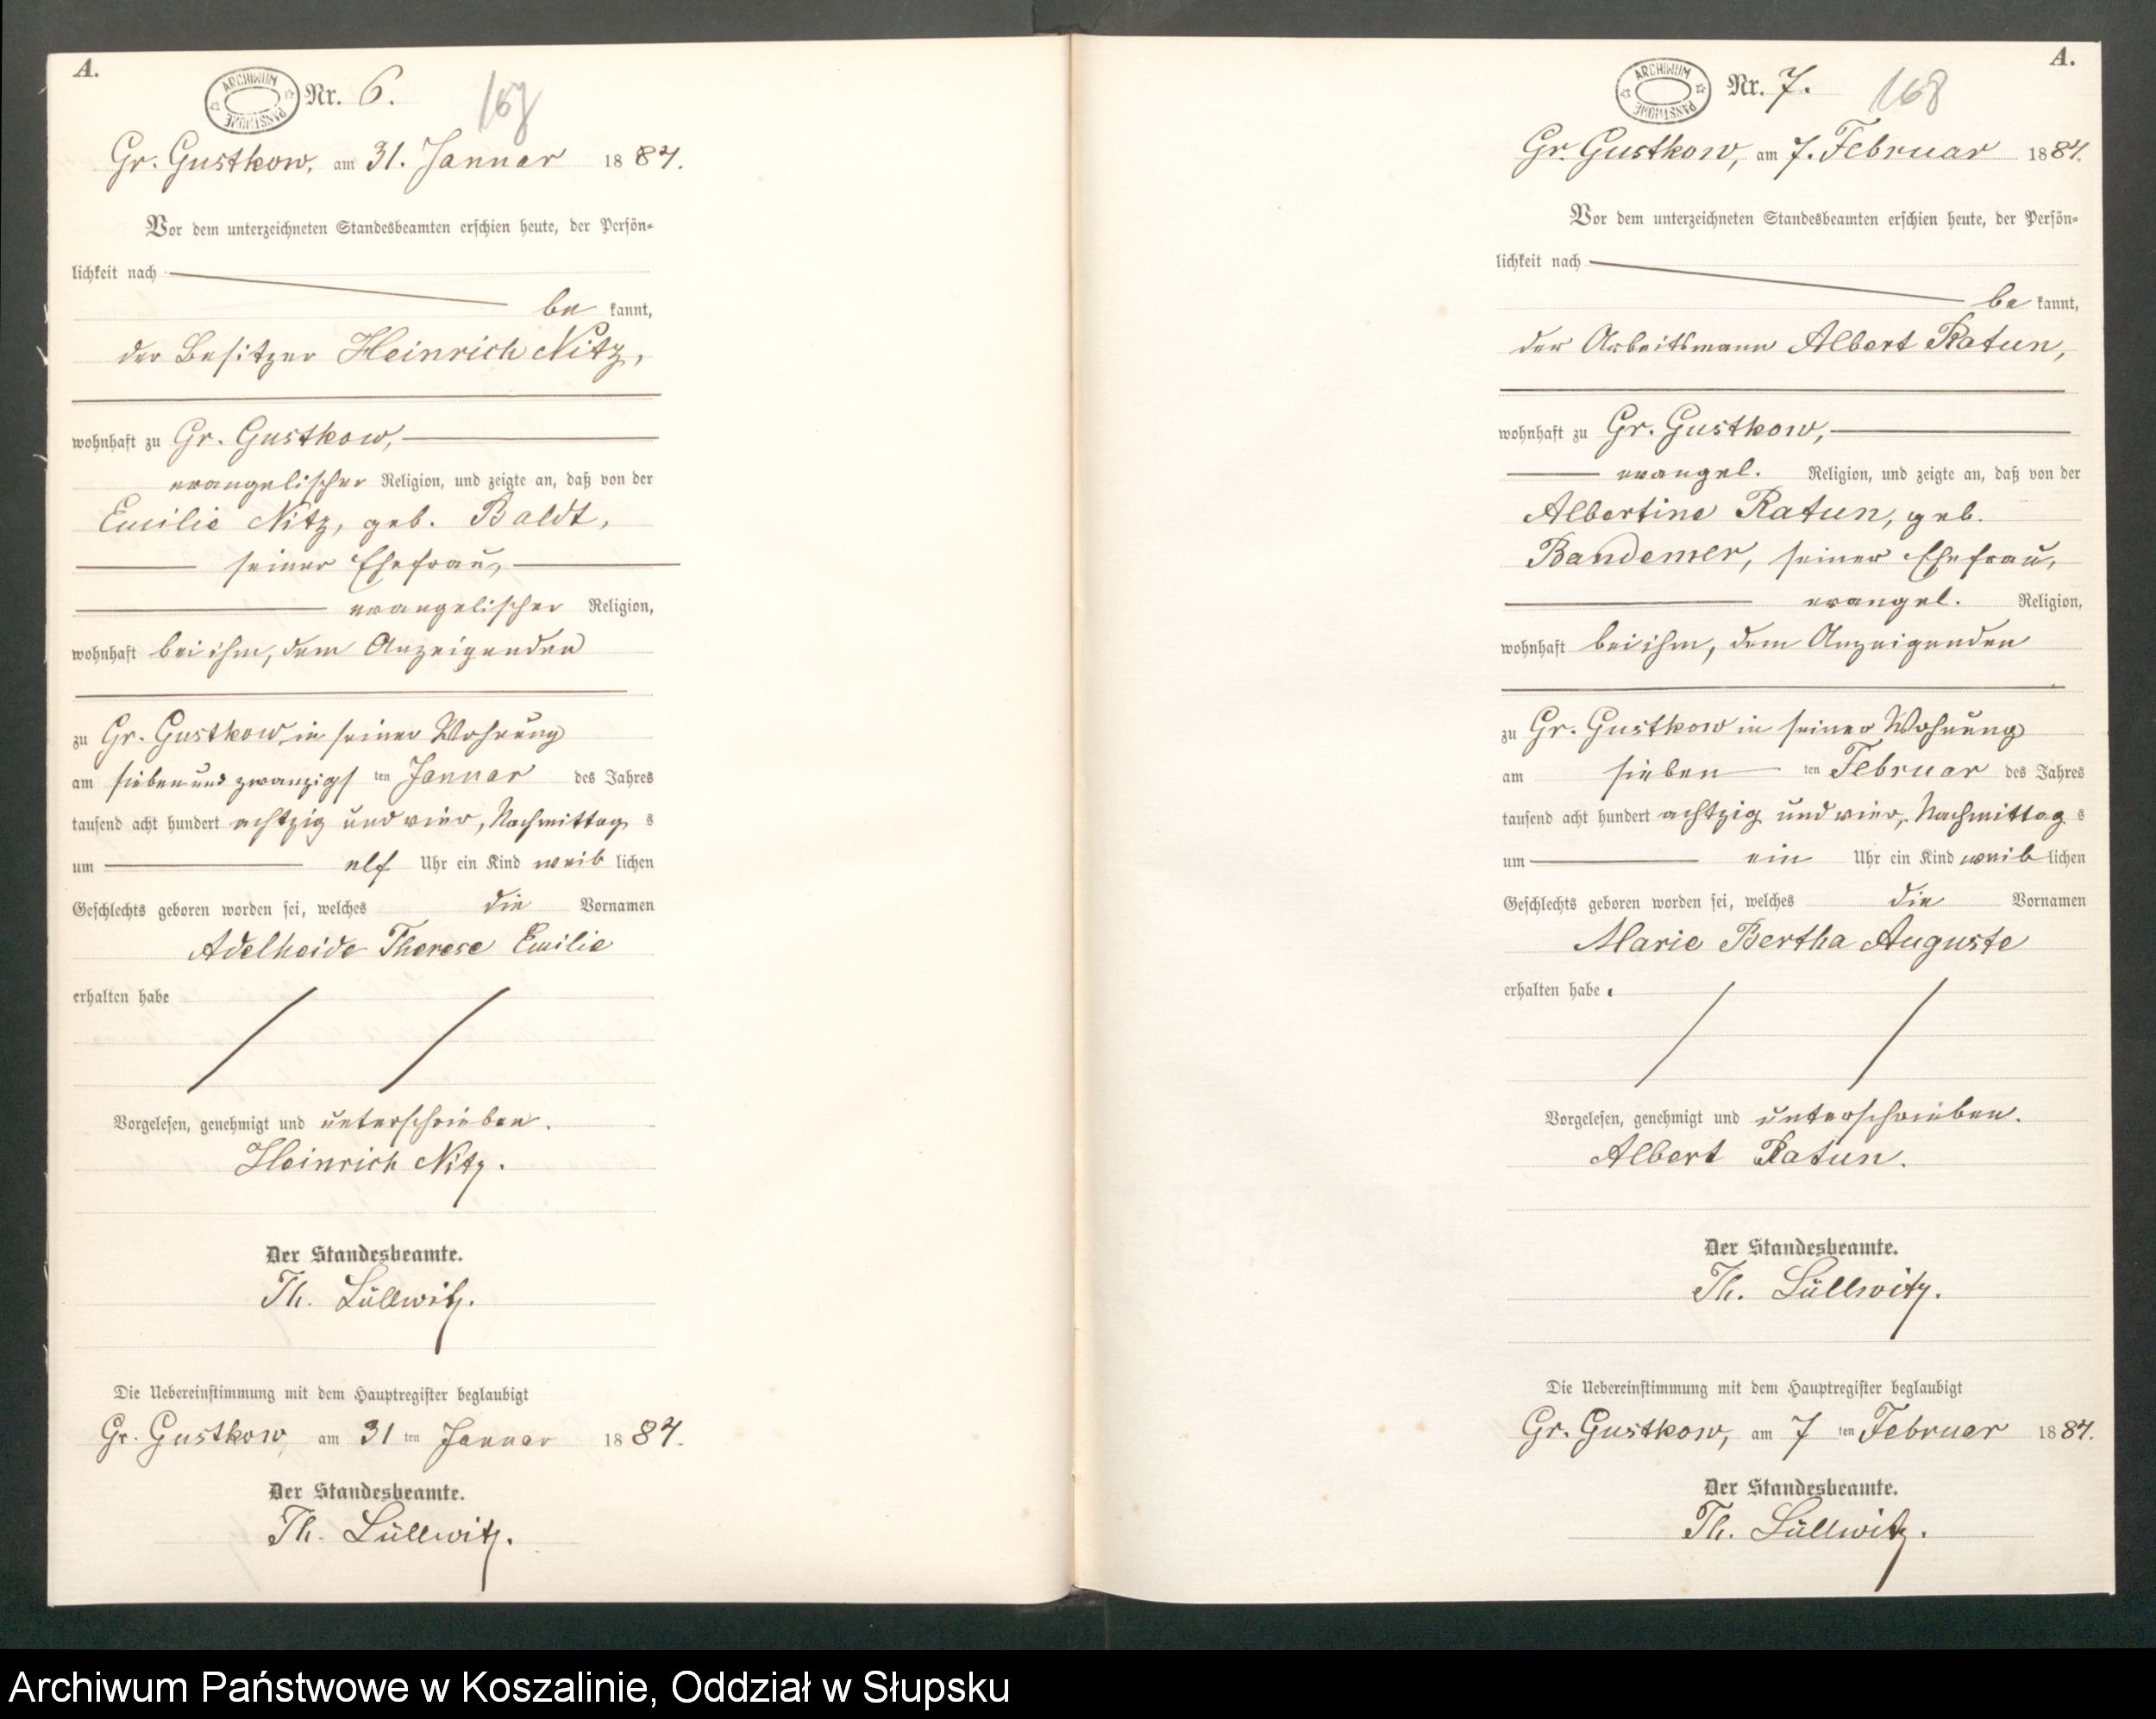 A.
ARCHIWUM PAŃSTWOWE
Nr. 6.
167
Gr. Gustkow, am 31. Januar 1884.
Vor dem unterzeichneten Standesbeamten erschien heute, der Persön-
lichkeit nach
be kannt,
der Besitzer Heinrich Nitz,
wohnhaft zu Gr. Gustkow,
evangelischer Religion, und zeigte an, daß von der
Emilie Nitz, geb. Baldt,
seiner Ehefrau,
evangelischer Religion,
wohnhaft bei ihm, dem Anzeigenden
zu Gr. Gustkow in seiner Wohnung
am sieben und zwanzigs ten Januar des Jahres
tausend acht hundert achtzig und vier, Nachmittag s
um elf Uhr ein Kind weib lichen
Geschlechts geboren worden sei, welches die Vornamen
Adelheide Therese Emilie
erhalten habe
Vorgelesen, genehmigt und unterschrieben.
Heinrich Nitz.
Der Standesbeamte.
Th. Lüllwitz.
Die Uebereinstimmung mit dem Hauptregister beglaubigt
Gr. Gustkow, am 31 ten Januar 1884.
Der Standesbeamte.
Th. Lüllwitz.
A.
ARCHIWUM PAŃSTWOWE
Nr. 7.
168
Gr. Gustkow, am 7. Februar 1884.
Vor dem unterzeichneten Standesbeamten erschien heute, der Persön-
lichkeit nach
be kannt,
der Arbeitsmann Albert Ratun,
wohnhaft zu Gr. Gustkow,
evangel. Religion, und zeigte an, daß von der
Albertine Ratun, geb.
Bandemer, seiner Ehefrau,
evangel. Religion,
wohnhaft bei ihm, dem Anzeigenden
zu Gr. Gustkow in seiner Wohnung
am sieben ten Februar des Jahres
tausend acht hundert achtzig und vier, Nachmittag s
um ein Uhr ein Kind weib lichen
Geschlechts geboren worden sei, welches die Vornamen
Marie Bertha Auguste
erhalten habe.
Vorgelesen, genehmigt und unterschrieben.
Albert Ratun.
Der Standesbeamte.
Th. Lüllwitz.
Die Uebereinstimmung mit dem Hauptregister beglaubigt
Gr. Gustkow, am 7 ten Februar 1884.
Der Standesbeamte.
Th. Lüllwitz.
Archiwum Państwowe w Koszalinie, Oddział w Słupsku